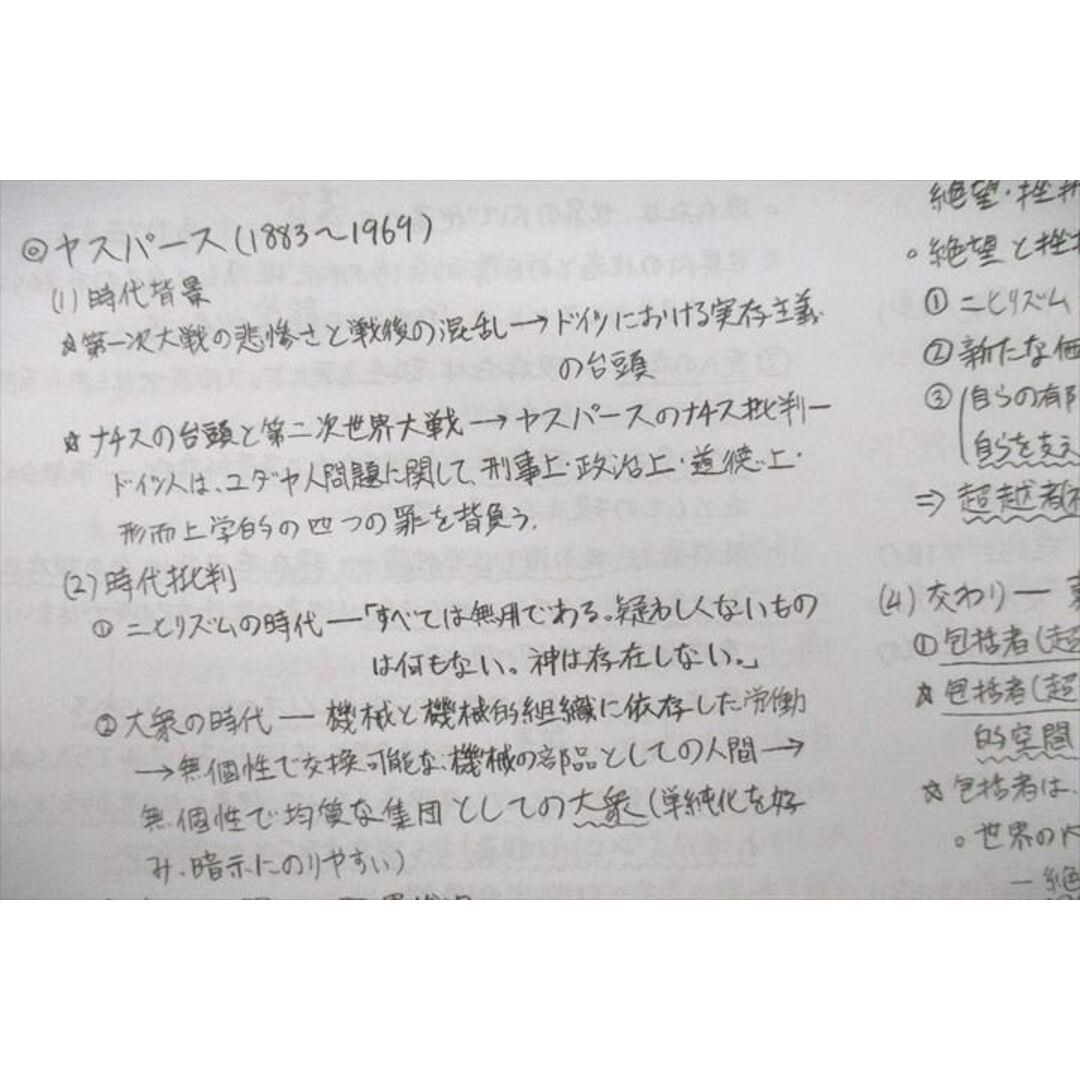 ◎ヤスパース(1883～1969)
(1)時代背景
☆第一次大戦の悲惨さと戦後の混乱→ドイツにおける実存主義
の台頭
☆ナチスの台頭と第二次世界大戦→ヤスパースのナチス批判ー
ドイツ人は、ユダヤ人問題に関して、刑事上・政治上・道徳上・
形而上学的の四つの罪を背負う。
(2)時代批判
①ニヒリズムの時代―「すべては無用である。疑わしくないもの
は何もない。神は存在しない。」
②大衆の時代―機械と機械的組織に依存した労働
→無個性で交換可能な、機械の部品としての人間→
無個性で均質な集団としての大衆(単純化を好
み、暗示にのりやすい)
絶望・挫折
。絶望と挫
①ニヒリズム
②新たな価
③(自らの有限
自らを支え
⇒超越者
(4)交わりー
①包括者(超
☆包括者(超
的空間
☆包括者は、
。世界の内
ー絶